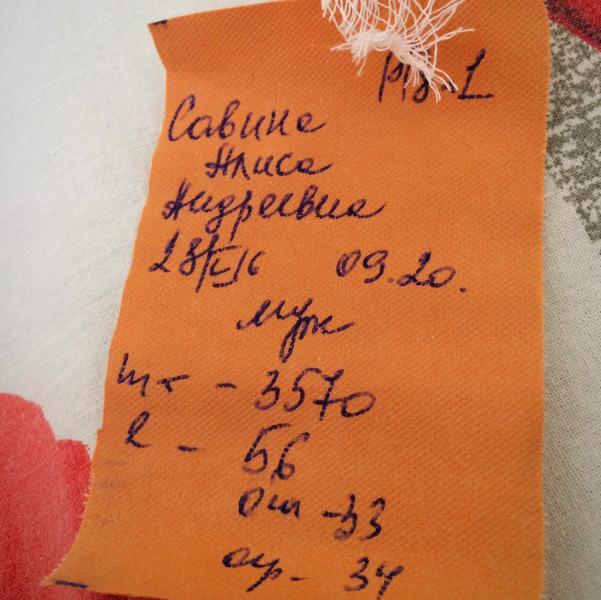 Савина
Алиса
Андреевна
09.20.
муж
mт - 3570
l - 56
ог - 33
ог - 34